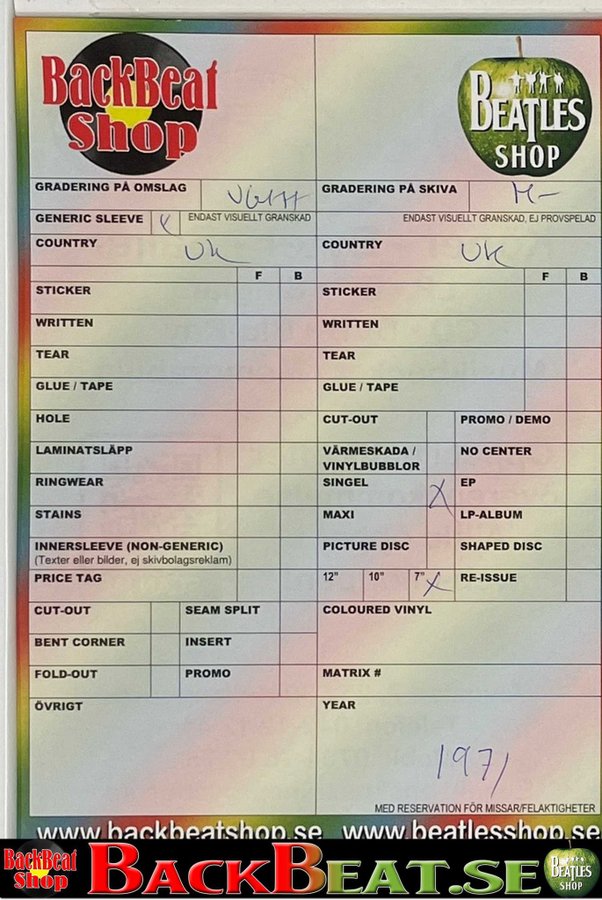 BackBeat
Shop
BEATLES
SHOP
GRADERING PÅ OMSLAG VG++
GRADERING PÅ SKIVA M-
GENERIC SLEEVE X ENDAST VISUELLT GRANSKAD
ENDAST VISUELLT GRANSKAD, EJ PROVSPELAD
COUNTRY UK
COUNTRY UK
F B
F B
STICKER
STICKER
WRITTEN
WRITTEN
TEAR
TEAR
GLUE / TAPE
GLUE / TAPE
HOLE
CUT-OUT PROMO / DEMO
LAMINATSLÄPP
VÄRMESKADA /
VINYLBUBBLOR
NO CENTER
RINGWEAR
SINGEL X EP
STAINS
MAXI LP-ALBUM
INNERSLEEVE (NON-GENERIC)
(Texter eller bilder, ej skivbolagsreklam)
PICTURE DISC SHAPED DISC
PRICE TAG
12" 10" 7" X RE-ISSUE
CUT-OUT SEAM SPLIT
COLOURED VINYL
BENT CORNER INSERT
FOLD-OUT PROMO
MATRIX #
ÖVRIGT
YEAR
1971
MED RESERVATION FÖR MISSAR/FELAKTIGHETER
www.backbeatshop.se www.beatlesshop.se
BackBeat
Shop
BACKBEAT.SE
BEATLES
SHOP